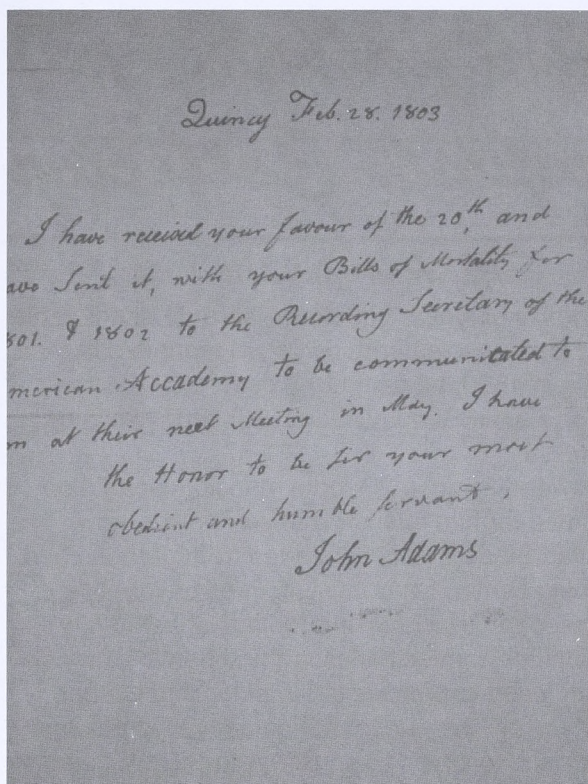 Quincy Feb. 28. 1803
I have received your favour of the 20th, and
ave Sent it, with your Bills of Mortality for
801. & 1802 to the Recording Secretary of the
merican Accademy to be communicated to
m at their next Meeting in May. I have
the Honor to be Sir your most
obedient and humble servant,
John Adams